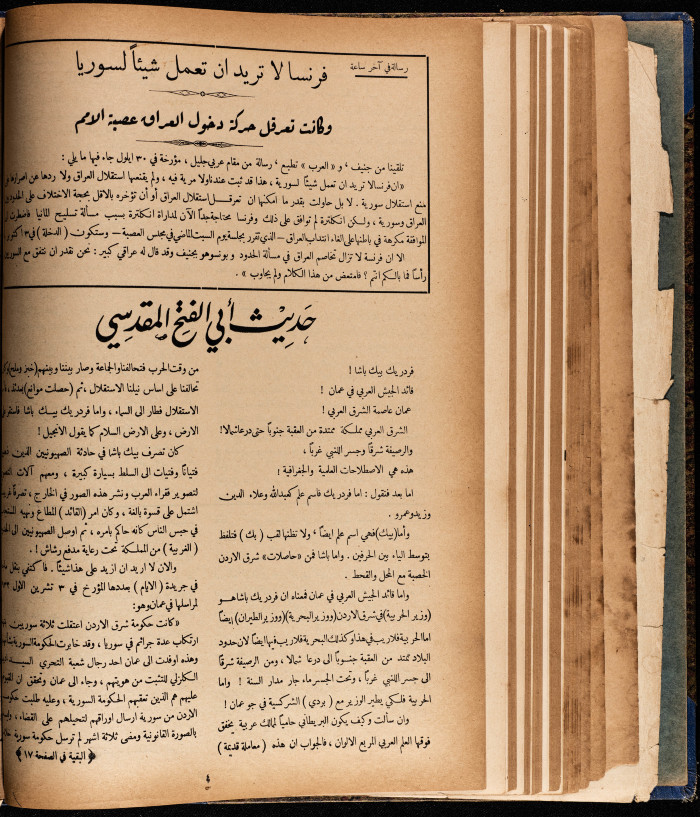 رسالة في آخر ساعة
فرنسا لا تريد ان تعمل شيئاً لسوريا
وكانت تعرقل حركة دخول العراق عصبة الامم
تلقينا من جنيف ، و « العرب » تطبع ، رسالة من مقام عربي جليل ، مؤرخة في ٣٠ ايلول جاء فيها ما يلي :
« ان فرنسا لا تريد ان تعمل شيئاً لسورية ، هذا قد ثبت عندنا ولا مرية فيه ، ولم يقنعها استقلال العراق ولا ردها عن اصرارها
منع استقلال سورية . لا بل حاولت بقدر ما امكنها ان تعرقـــل استقلال العراق أو أن تؤخره بالاقل بحجة الاختلاف على الحدود
العراق وسورية ، ولــكن انكلترة لم توافق على ذلك وفرنسا محتاجة جداً الآن لمداراة انكلترة بسبب مسألة تسليح المانيا فاضطرت
الموافقة مكرهة في باطنها على الغاء انتداب العراق – الذي تقرر بجلسة يوم السبت الماضي في مجلس العصبة – وستكون ( الدخلة ) في ٣
الا ان فرنسة لا تزال تخاصم العراق في مسألة الحدود و بونسو هو بجنيف وقد قال له عراقي كبير : نحن نقدر ان نتفق مع السوريين
رأساً فما بالكم انتم ؟ فامتعض من هذا الكلام ولم يجاوب » .
حديث أبي الفتح المقدسي
فردريك بيك باشا !
قائد الجيش العربي في عمان !
عمان عاصمة الشرق العربي !
الشرق العربي مملكة ممتدة من العقبة جنوبا حتى درعا شمالا!
والرصيفة شرقاً وجسر اللنبي غرباً ،
هذه هي الاصطلاحات العلمية والجغرافية !
اما بعد فنقول : اما فردريك فاسم علم كعبدالله وعلاء الدين
وزيد وعمرو .
وأما (بيك) فهي اسم علم ايضاً ، ولا نظنها لقب ( بك ) فتلفظ
بتوسط الياء بين الحرفين . واما باشا فمن « حاصلات » شرق الاردن
الخصبة مع المحل والقحط .
واما قائد الجيش العربي في عمان فمعناه ان فردريك باشا هــو
(وزير الحربية) في شرق الاردن (ووزير البحرية) (ووزير الطيران) ايضاً
اما الحربية فلاريب في هذا وكذلك البحرية فلاريب فيها ايضاً لان حدود
البلاد تمتد من العقبة جنــوباً الى درعا شمالا ، ومن الرصيفة شرقاً
الى جسر اللنبي غرباً ، وتحت الجسر ماء جار مدار السنة ! واما
الحربية فلكي يطير الوزير مع ( بردي ) الشركسية في جو عمان !
وان سألت وكيف يكون البريطاني حامياً لمالك عربية يخفق
فوقها العلم العربي المربع الالوان ، فالجواب ان هذه ( معاملة قديمة )
من وقت الحرب فتحالفنا والجماعة وصار بيننا وبينهم (خبز وملح)
تحالفنا على اساس نيلنا الاستقلال ، ثم (حصلت موانع) بعدئذ ،
الاستقلال فطار الى السماء ، واما فردريك بيــك باشا فاستقر
الارض ، وعلى الارض السلام كما يقول الانجيل !
كان تصرف بيك باشا في حادثة الصهيونيين الذين
فتياناً وفتيات الى السلط بسيارة كبيرة ، ومعهم آلات
لتصوير فقراء العرب ونشر هذه الصور في الخارج ، تصرفاً
اشتمل على قسوة بالغة ، وكان امر (القائد) المطاع ونهيه
في حبس الناس كانه حاكم بامره ، ثم اوصل الصهيونيين الى
( الغربية ) من المملكة تحت رعاية مدفع رشاش ! .
والان لا اريد ان ازيد على هذا شيئاً . فاكتفي بنقل
في جريدة ( الايام ) بعددها المؤرخ في ٣ تشرين الاول
لمراسلها في عمان وهو:
« كانت حكومة شرق الاردن اعتقلت ثلاثة سوريين
ارتكاب عدة جرائم في سوريا ، وقد خابرت الحكومة السورية
وهذه اوفدت الى عمان احد رجال شعبة التحري
الكلزلي للتثبت من هويتهم ، وجاء الى عمان وتحقق ان
عليهم هم الذين تعقبهم الحكومة السورية ، وعليه طلبت حكومة
الاردن من سورية ارسال اوراقهم لتحيلهم على القضاء ،
بالصورة القانونية ومضى ثلاثة اشهر لم ترسل حكومة سورية
﴿ البقية في الصفحة ١٧ ﴾
٤